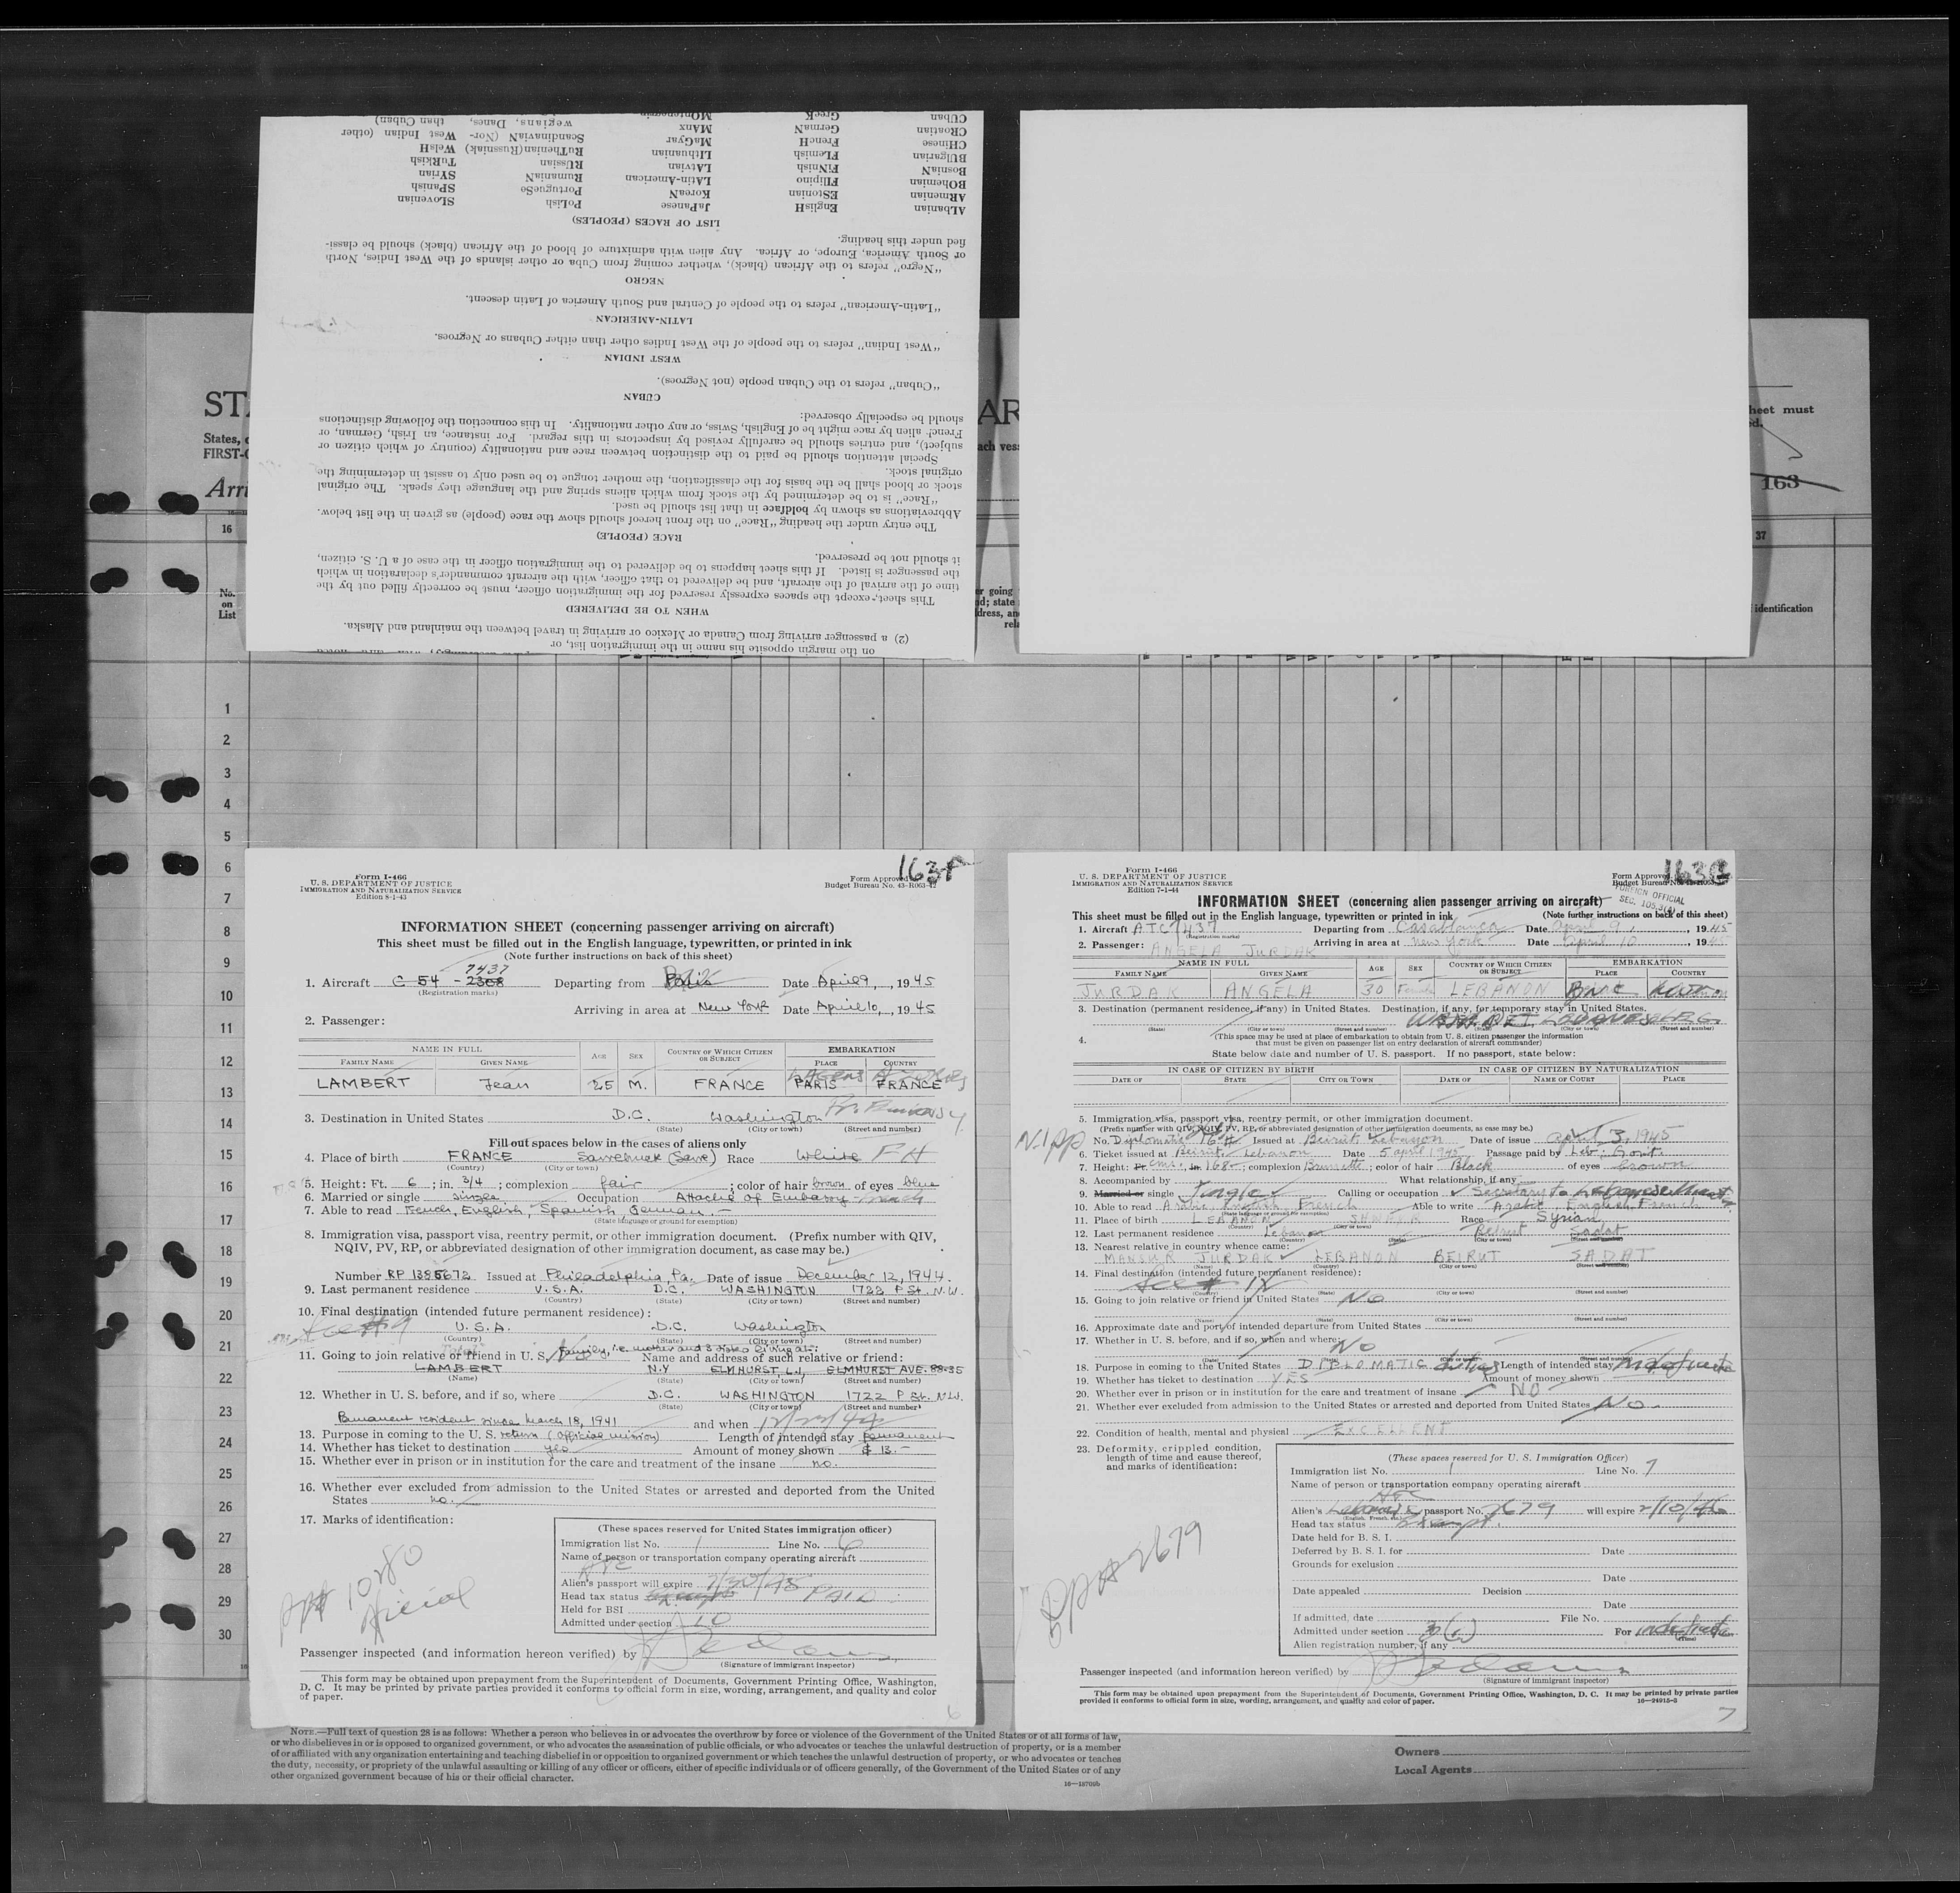 CUBAN GreeK MOntenegrin wegians, Danes, than Cuban)
CRoatian GermaN MAnx ScandinaviaN (Nor- West Indian (other
CHinese FrencH MaGyar RuThenian (Russniak) WelsH
BUlgarian FLemish LIthuanian RUssian TuRKish
BosniaN FiNnish LAtvian RumaniaN SYrian
BOhemian FIlipino LAtin-American PortugueSe SPanish
ARmenian EStonian KoreaN PoLish SLOvenian
ALbanian EnglisH JaPanese
LIST OF RACES (PEOPLES)
fied under this heading.
or South America, Europe, or Africa. Any alien with admixture of blood of the African (black) should be classi-
"Negro" refers to the African (black), whether coming from Cuba or other islands of the West Indies, North
NEGRO
"Latin-American" refers to the people of Central and South America of Latin descent.
LATIN-AMERICAN
"West Indian" refers to the people of the West Indies other than either Cubans or Negroes.
WEST INDIAN
"Cuban" refers to the Cuban people (not Negroes).
CUBAN
should be especially observed:
French alien by race might be of English, Swiss, or any other nationality. In this connection the following distinctions
subject), and entries should be carefully revised by inspectors in this regard. For instance, an Irish, German, or
Special attention should be paid to the distinction between race and nationality (country of which citizen or
original stock.
stock or blood shall be the basis for the classification, the mother tongue to be used only to assist in determining the
"Race" is to be determined by the stock from which aliens spring and the language they speak. The original
Abbreviations as shown by boldface in that list should be used.
The entry under the heading "Race" on the front hereof should show the race (people) as given in the list below.
RACE (PEOPLE)
it should not be preserved.
the passenger is listed. If this sheet happens to be delivered to the immigration officer in the case of a U. S. citizen,
time of the arrival of the aircraft, and be delivered to that officer, with the aircraft commander's declaration in which
This sheet, except the spaces expressly reserved for the immigration officer, must be correctly filled out by the
WHEN TO BE DELIVERED
(2) a passenger arriving from Canada or Mexico or arriving in travel between the mainland and Alaska.
on the margin opposite his name in the immigration list, or
STA AR heet must
States, ach vess
FIRST-C
Arri 163
16 37
No. on List identification
1
2
3
4
5
6
7
8
9
10
11
12
13
14
15
16
17
18
19
20
21
22
23
24
25
26
27
28
29
30
Form I-466
U. S. DEPARTMENT OF JUSTICE
IMMIGRATION AND NATURALIZATION SERVICE
Edition 8-1-43
Form Approved
Budget Bureau No. 43-R063-42
163F
INFORMATION SHEET (concerning passenger arriving on aircraft)
This sheet must be filled out in the English language, typewritten, or printed in ink
(Note further instructions on back of this sheet)
7437
1. Aircraft C 54 - 2308 Departing from Paris Date April 9, 1945
(Registration marks)
Arriving in area at New York Date April 10, 1945
2. Passenger:
NAME IN FULL AGE SEX COUNTRY OF WHICH CITIZEN OR SUBJECT EMBARKATION
FAMILY NAME GIVEN NAME PLACE COUNTRY
LAMBERT Jean 25 M. FRANCE PARIS FRANCE
3. Destination in United States D.C. Washington
(State) (City or town) (Street and number)
Fill out spaces below in the cases of aliens only
4. Place of birth FRANCE Sarrebruck (Sarre) Race White FH
(Country) (City or town)
5. Height: Ft. 6; in. 3/4; complexion fair; color of hair brown of eyes blue
6. Married or single single Occupation Attaché of Embassy - French
7. Able to read French, English, Spanish, German.
(State language or ground for exemption)
8. Immigration visa, passport visa, reentry permit, or other immigration document. (Prefix number with QIV,
NQIV, PV, RP, or abbreviated designation of other immigration document, as case may be.)
Number RP 1385672 Issued at Philadelphia, Pa. Date of issue December 12, 1944.
9. Last permanent residence U.S.A. D.C. WASHINGTON 1722 P St. N.W.
(Country) (State) (City or town) (Street and number)
10. Final destination (intended future permanent residence):
See # 9 U.S.A. D.C. Washington
(Country) (State) (City or town) (Street and number)
11. Going to join relative or friend in U. S. No Family, i.e. mother and 3 sisters living at: Name and address of such relative or friend:
LAMBERT N.Y ELMHURST, L.I. ELMHURST AVE. 88-35
(Name) (State) (City or town) (Street and number)
12. Whether in U. S. before, and if so, where D.C. WASHINGTON 1722 P St. N.W.
(State) (City or town) (Street and number)
Permanent resident since March 18, 1941 and when
13. Purpose in coming to the U. S. return (official mission) Length of intended stay permanent
14. Whether has ticket to destination yes Amount of money shown $ 13.-
15. Whether ever in prison or in institution for the care and treatment of the insane no.
16. Whether ever excluded from admission to the United States or arrested and deported from the United
States no.
17. Marks of identification:
(These spaces reserved for United States immigration officer)
Immigration list No. 1 Line No. 6
Name of person or transportation company operating aircraft
ATC
Alien's passport will expire
Head tax status PAID
Held for BSI
Admitted under section
PP# 1080
Official
Passenger inspected (and information hereon verified) by
(Signature of immigrant inspector)
This form may be obtained upon prepayment from the Superintendent of Documents, Government Printing Office, Washington,
D. C. It may be printed by private parties provided it conforms to official form in size, wording, arrangement, and quality and color
of paper.
6
Form I-466
U. S. DEPARTMENT OF JUSTICE
IMMIGRATION AND NATURALIZATION SERVICE
Edition 7-1-44
Form Approved
Budget Bureau No.
163G
FOREIGN OFFICIAL
SEC. 105.3(4)
INFORMATION SHEET (concerning alien passenger arriving on aircraft)
This sheet must be filled out in the English language, typewritten or printed in ink (Note further instructions on back of this sheet)
1. Aircraft ATC 7437 Departing from Casablanca Date April 9, 1945
(Registration marks)
2. Passenger: ANGELA JURDAK Arriving in area at New York Date April 10, 1945
NAME IN FULL AGE SEX COUNTRY OF WHICH CITIZEN OR SUBJECT EMBARKATION
FAMILY NAME GIVEN NAME PLACE COUNTRY
JURDAK ANGELA 30 Female LEBANON
3. Destination (permanent residence, if any) in United States. Destination, if any, for temporary stay in United States.
(State) (City or town) (Street and number) (State) (City or town) (Street and number)
4. (This space may be used at place of embarkation to obtain from U. S. citizen passenger the information
that must be given on passenger list on entry declaration of aircraft commander)
State below date and number of U. S. passport. If no passport, state below:
IN CASE OF CITIZEN BY BIRTH IN CASE OF CITIZEN BY NATURALIZATION
DATE OF STATE CITY OR TOWN DATE OF NAME OF COURT PLACE
5. Immigration visa, passport visa, reentry permit, or other immigration document.
(Prefix number with QIV, NQIV, PV, RP, or abbreviated designation of other immigration document, as case may be.)
No. Diplomatic Issued at Beirut, Lebanon Date of issue April 3, 1945
6. Ticket issued at Beirut, Lebanon Date 5 april 1945 Passage paid by Leb. Govt.
7. Height: Ft. cms. in. 168; complexion Brunette; color of hair Black of eyes brown
8. Accompanied by What relationship, if any
9. Married or single Single Calling or occupation Secretary to
10. Able to read Arabic, English, French Able to write Arabic, English, French
(State language or ground for exemption)
11. Place of birth LEBANON Race Syrian
(Country) (City or town)
12. Last permanent residence Lebanon Beirut Sadat
(Country) (State) (City or town) (Street and number)
13. Nearest relative in country whence came:
MANSUR JURDAK LEBANON BEIRUT SADAT
(Name) (Country) (City or town) (Street and number)
14. Final destination (intended future permanent residence):
See # 12
(Country) (State) (City or town) (Street and number)
15. Going to join relative or friend in United States No
(Name) (State) (City or town) (Street and number)
16. Approximate date and port of intended departure from United States
17. Whether in U. S. before, and if so, when and where: No
(Date) (State) (City or town) (Street and number)
18. Purpose in coming to the United States DIPLOMATIC duties Length of intended stay indefinite
19. Whether has ticket to destination YES Amount of money shown
20. Whether ever in prison or in institution for the care and treatment of insane NO
21. Whether ever excluded from admission to the United States or arrested and deported from United States No
22. Condition of health, mental and physical EXCELLENT
23. Deformity, crippled condition,
length of time and cause thereof,
and marks of identification:
(These spaces reserved for U. S. Immigration Officer)
Immigration list No. 1 Line No. 7
Name of person or transportation company operating aircraft
ATC
Alien's Lebanese passport No. 2679 will expire 2/10/46
(English, French, etc.)
Head tax status Exempt
Date held for B. S. I.
Deferred by B. S. I. for Date
Grounds for exclusion
Date
Date appealed Decision
Date
If admitted, date File No.
Admitted under section For indefinite
(Time)
Alien registration number, if any
PP# 2679
Passenger inspected (and information hereon verified) by
(Signature of immigrant inspector)
This form may be obtained upon prepayment from the Superintendent of Documents, Government Printing Office, Washington, D. C. It may be printed by private parties
provided it conforms to official form in size, wording, arrangement, and quality and color of paper. 16—24915-3
7
NOTE.—Full text of question 28 is as follows: Whether a person who believes in or advocates the overthrow by force or violence of the Government of the United States or of all forms of law,
or who disbelieves in or is opposed to organized government, or who advocates the assassination of public officials, or who advocates or teaches the unlawful destruction of property, or is a member
of or affiliated with any organization entertaining and teaching disbelief in or opposition to organized government or which teaches the unlawful destruction of property, or who advocates or teaches
the duty, necessity, or propriety of the unlawful assaulting or killing of any officer or officers, either of specific individuals or of officers generally, of the Government of the United States or of any
other organized government because of his or their official character.
Owners
Local Agents